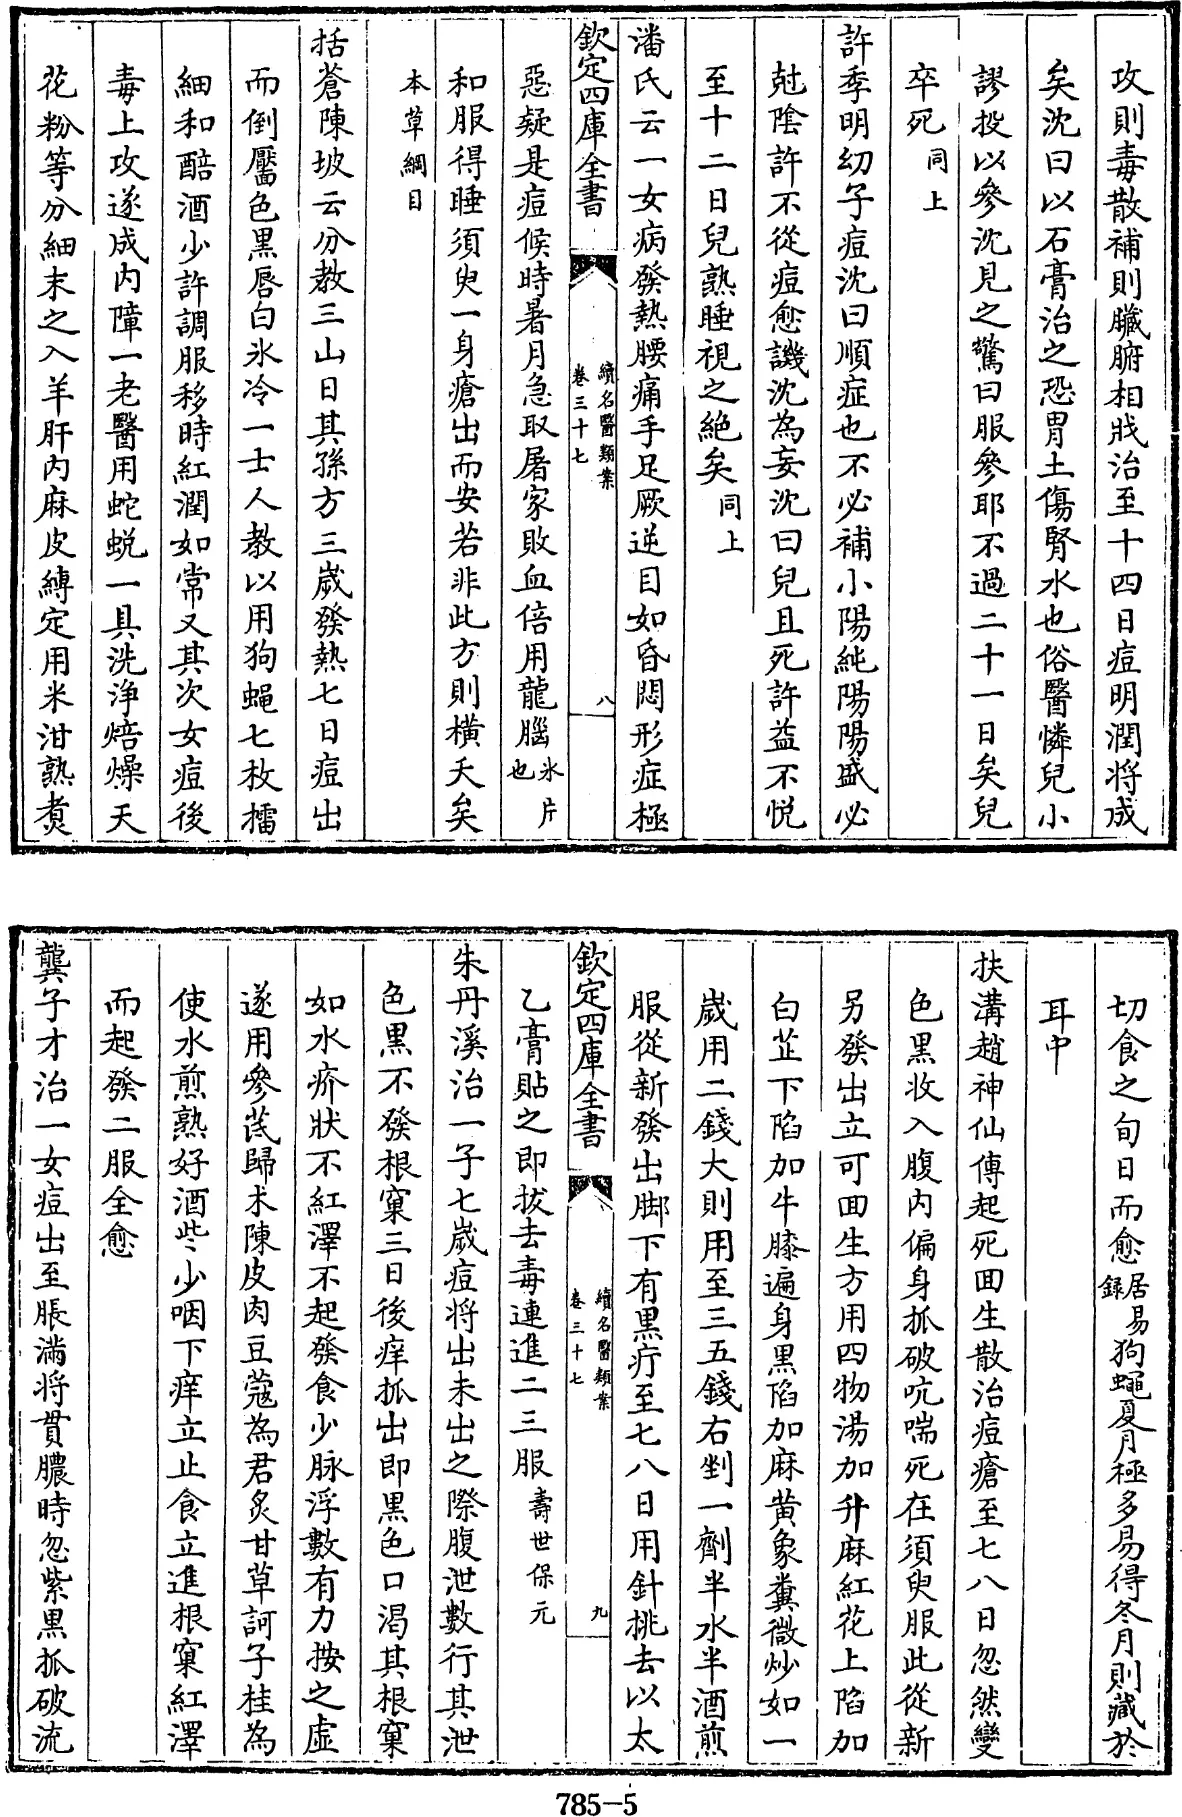 攻則毒散補則臟腑相戕治至十四日痘明潤將成
矣沈曰以石膏治之恐胃土傷腎水也俗醫憐兒小
謬投以參沈見之驚曰服參耶不過二十一日矣兒
卒死同上
許季明幼子痘沈曰順症也不必補小陽純陽陽盛必
尅陰許不從痘愈譏沈為妄沈曰兒且死許益不悦
至十二日兒熟睡視之絶矣同上
潘氏云一女病發熱腰痛手足厥逆目如昏悶形症極
欽定四庫全書
續名醫類案
卷三十七
八
惡疑是痘候時暑月急取屠家敗血倍用龍腦氷片也
和服得睡須臾一身瘡出而安若非此方則横夭矣
本草綱目
括蒼陳坡云分教三山日其孫方三歲發熱七日痘出
而倒靨色黒唇白氷冷一士人教以用狗蠅七枚擂
細和醅酒少許調服移時紅潤如常又其次女痘後
毒上攻遂成内障一老醫用蛇蜕一具洗浄焙燥天
花粉等分細末之入羊肝内麻皮縛定用米泔熟煮
切食之旬日而愈居易錄狗蠅夏月極多易得冬月則藏於
耳中
扶溝趙神仙傳起死回生散治痘瘡至七八日忽然變
色黒收入腹内偏身抓破吭喘死在須臾服此從新
另發出立可回生方用四物湯加升麻紅花上陷加
白芷下陷加牛膝遍身黒陷加麻黄象糞微炒如一
歲用二錢大則用至三五錢右剉一劑半水半酒煎
服從新發出脚下有黒疔至七八日用針挑去以太
欽定四庫全書
續名醫類案
卷三十七
九
乙膏貼之即拔去毒連進二三服壽世保元
朱丹溪治一子七歲痘将出未出之際腹泄數行其泄
色黒不發根窠三日後痒抓出即黒色口渴其根窠
如水疥狀不紅澤不起發食少脉浮數有力按之虚
遂用參茋歸术陳皮肉豆蔻為君炙甘草訶子桂為
使水煎熟好酒些少咽下痒立止食立進根窠紅澤
而起發二服全愈
龔子才治一女痘出至脹滿將貫膿時忽紫黒抓破流
785-5